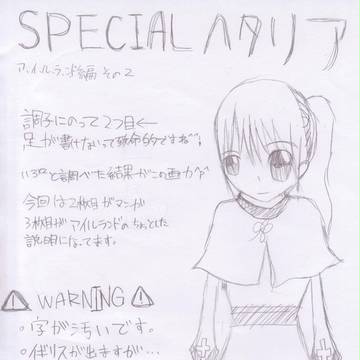 SPECIAL ヘタリア
アイルランド編 その2
調子にのって2つ目←
足が書けないって致命的ですね"。
いろいろと調べた結果がこの画力
今回は2枚目がマンガ
3枚目がアイルランドのちょっとした
説明になってます。
⚠ WARNING ⚠
・字が汚いです。
・イギリスが出ますが…